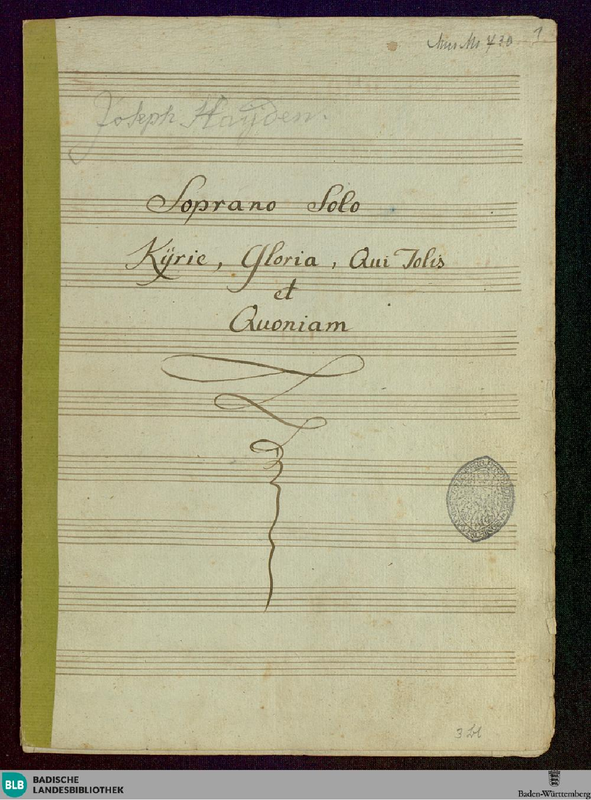 Mus. Ms. 430
1
Joseph Hayden.
Soprano Solo
Kÿrie, Gloria, Qui Tolis
et
Quoniam
BLB
BADISCHE
LANDESBIBLIOTHEK
Baden-Württemberg